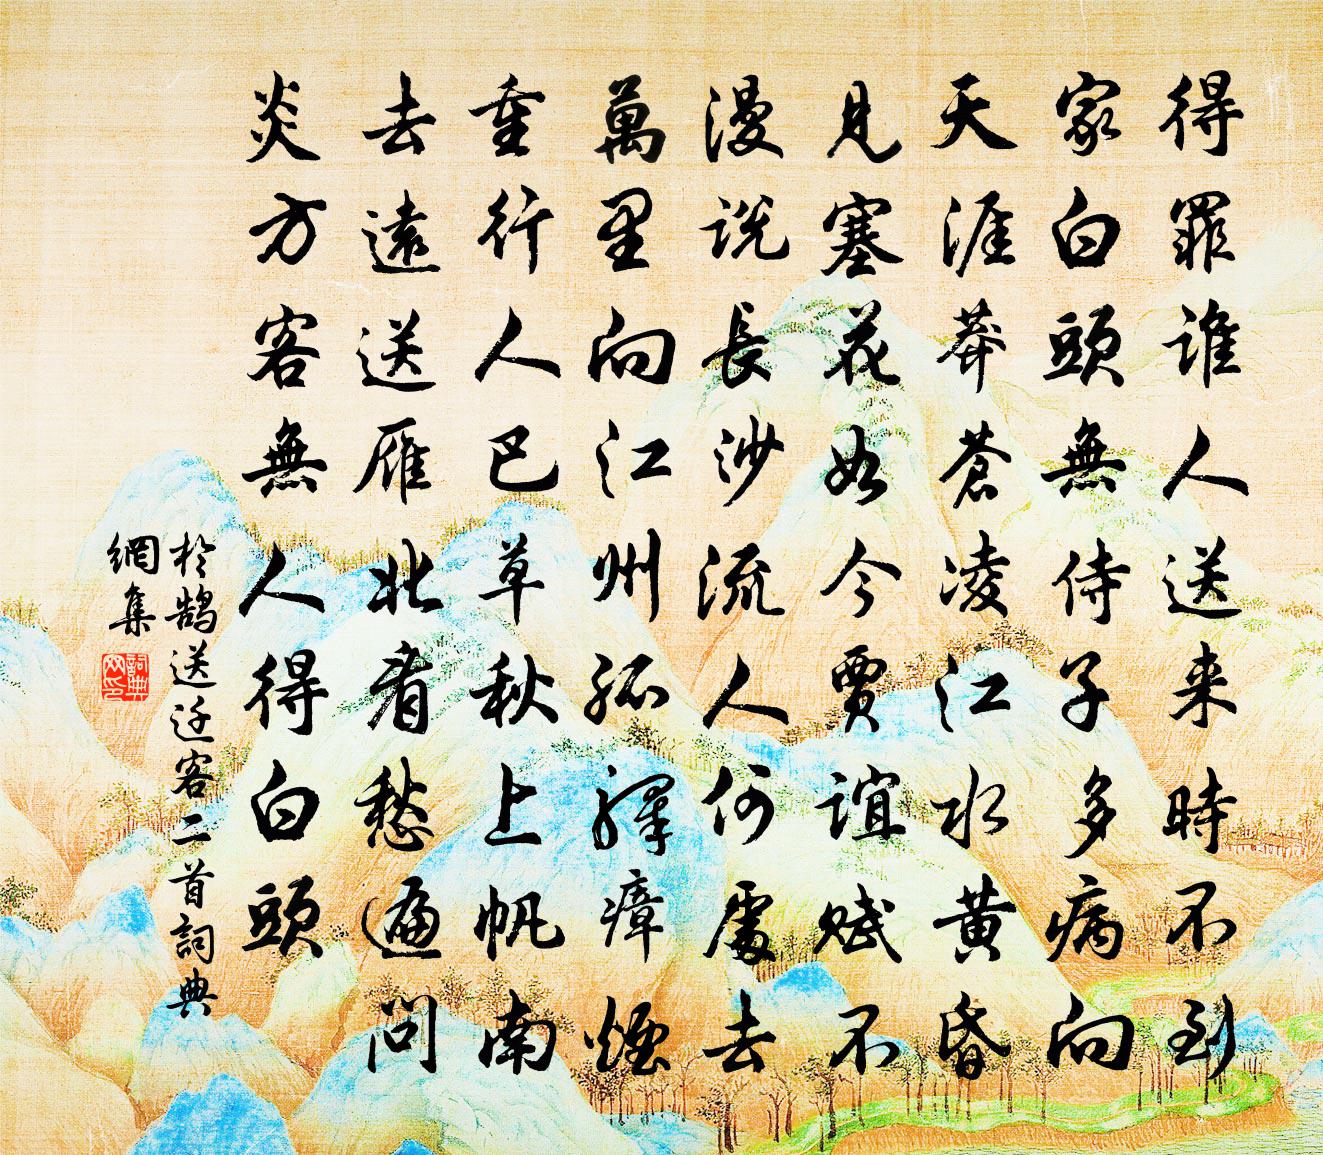 得罪誰人送来時不到
家白頭無侍子多病向
天涯莽蒼凌江水黄昏
見塞花如今賈誼賦不
漫説長沙流人何處去
萬里向江州孤驛瘴煙
重行人巴草秋上帆南
去遠送雁北看愁遍問
炎方客無人得白頭
於鵠送迁客二首詞典
網集
詞典
网印